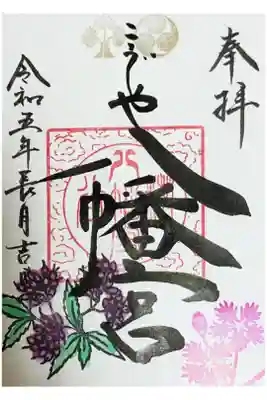 奉拝
こうじや
八幡宮
令和五年長月吉